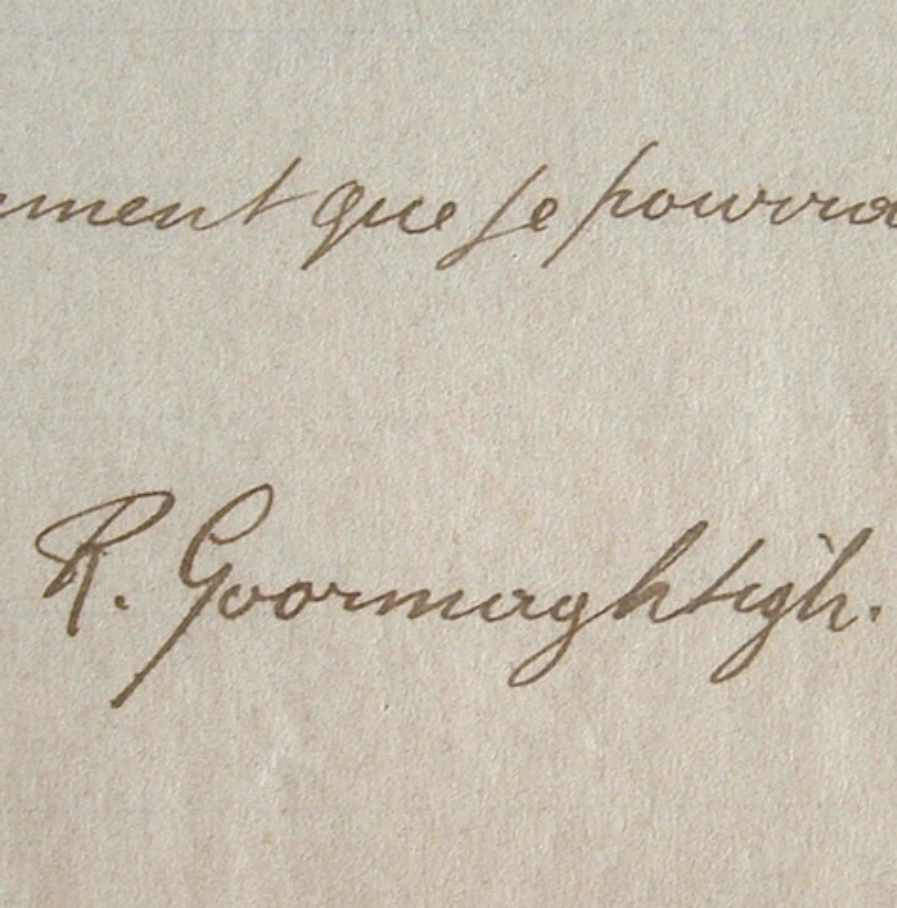 ment que je pourra
R. Goormaghtigh.